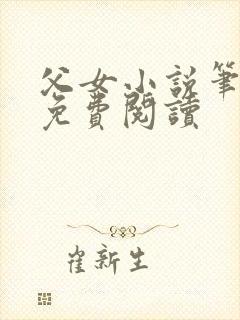 父女小说筆
免費閱讀
崔新生